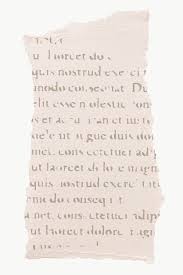 ut laoreet do
quis nostrud exerci t
modo consequat. Du
elit esse molestie cons
os et accu
dele ut augue duis do
met, cons ectetuer adip
ut laoreet dolo e magna
quis nostrud exerci tat
m do consequat
met, cons ectetuer adipis
ut laoreet dolore magn